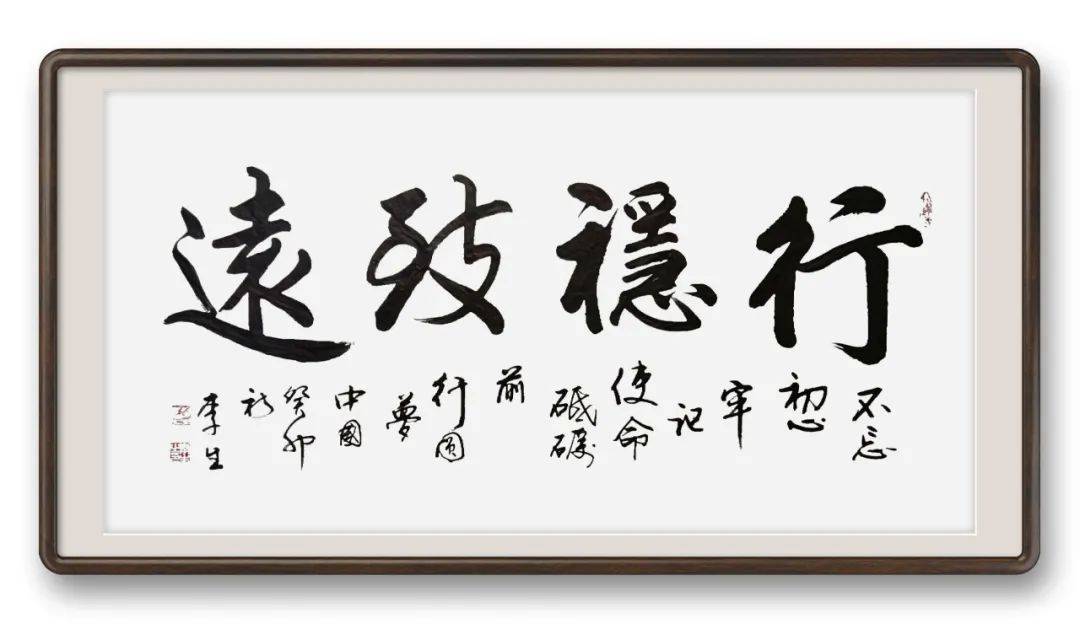 行穩致遠
不忘
初心
牢
记
使命
砥礪
前
行圓
夢
中國
癸卯
李生